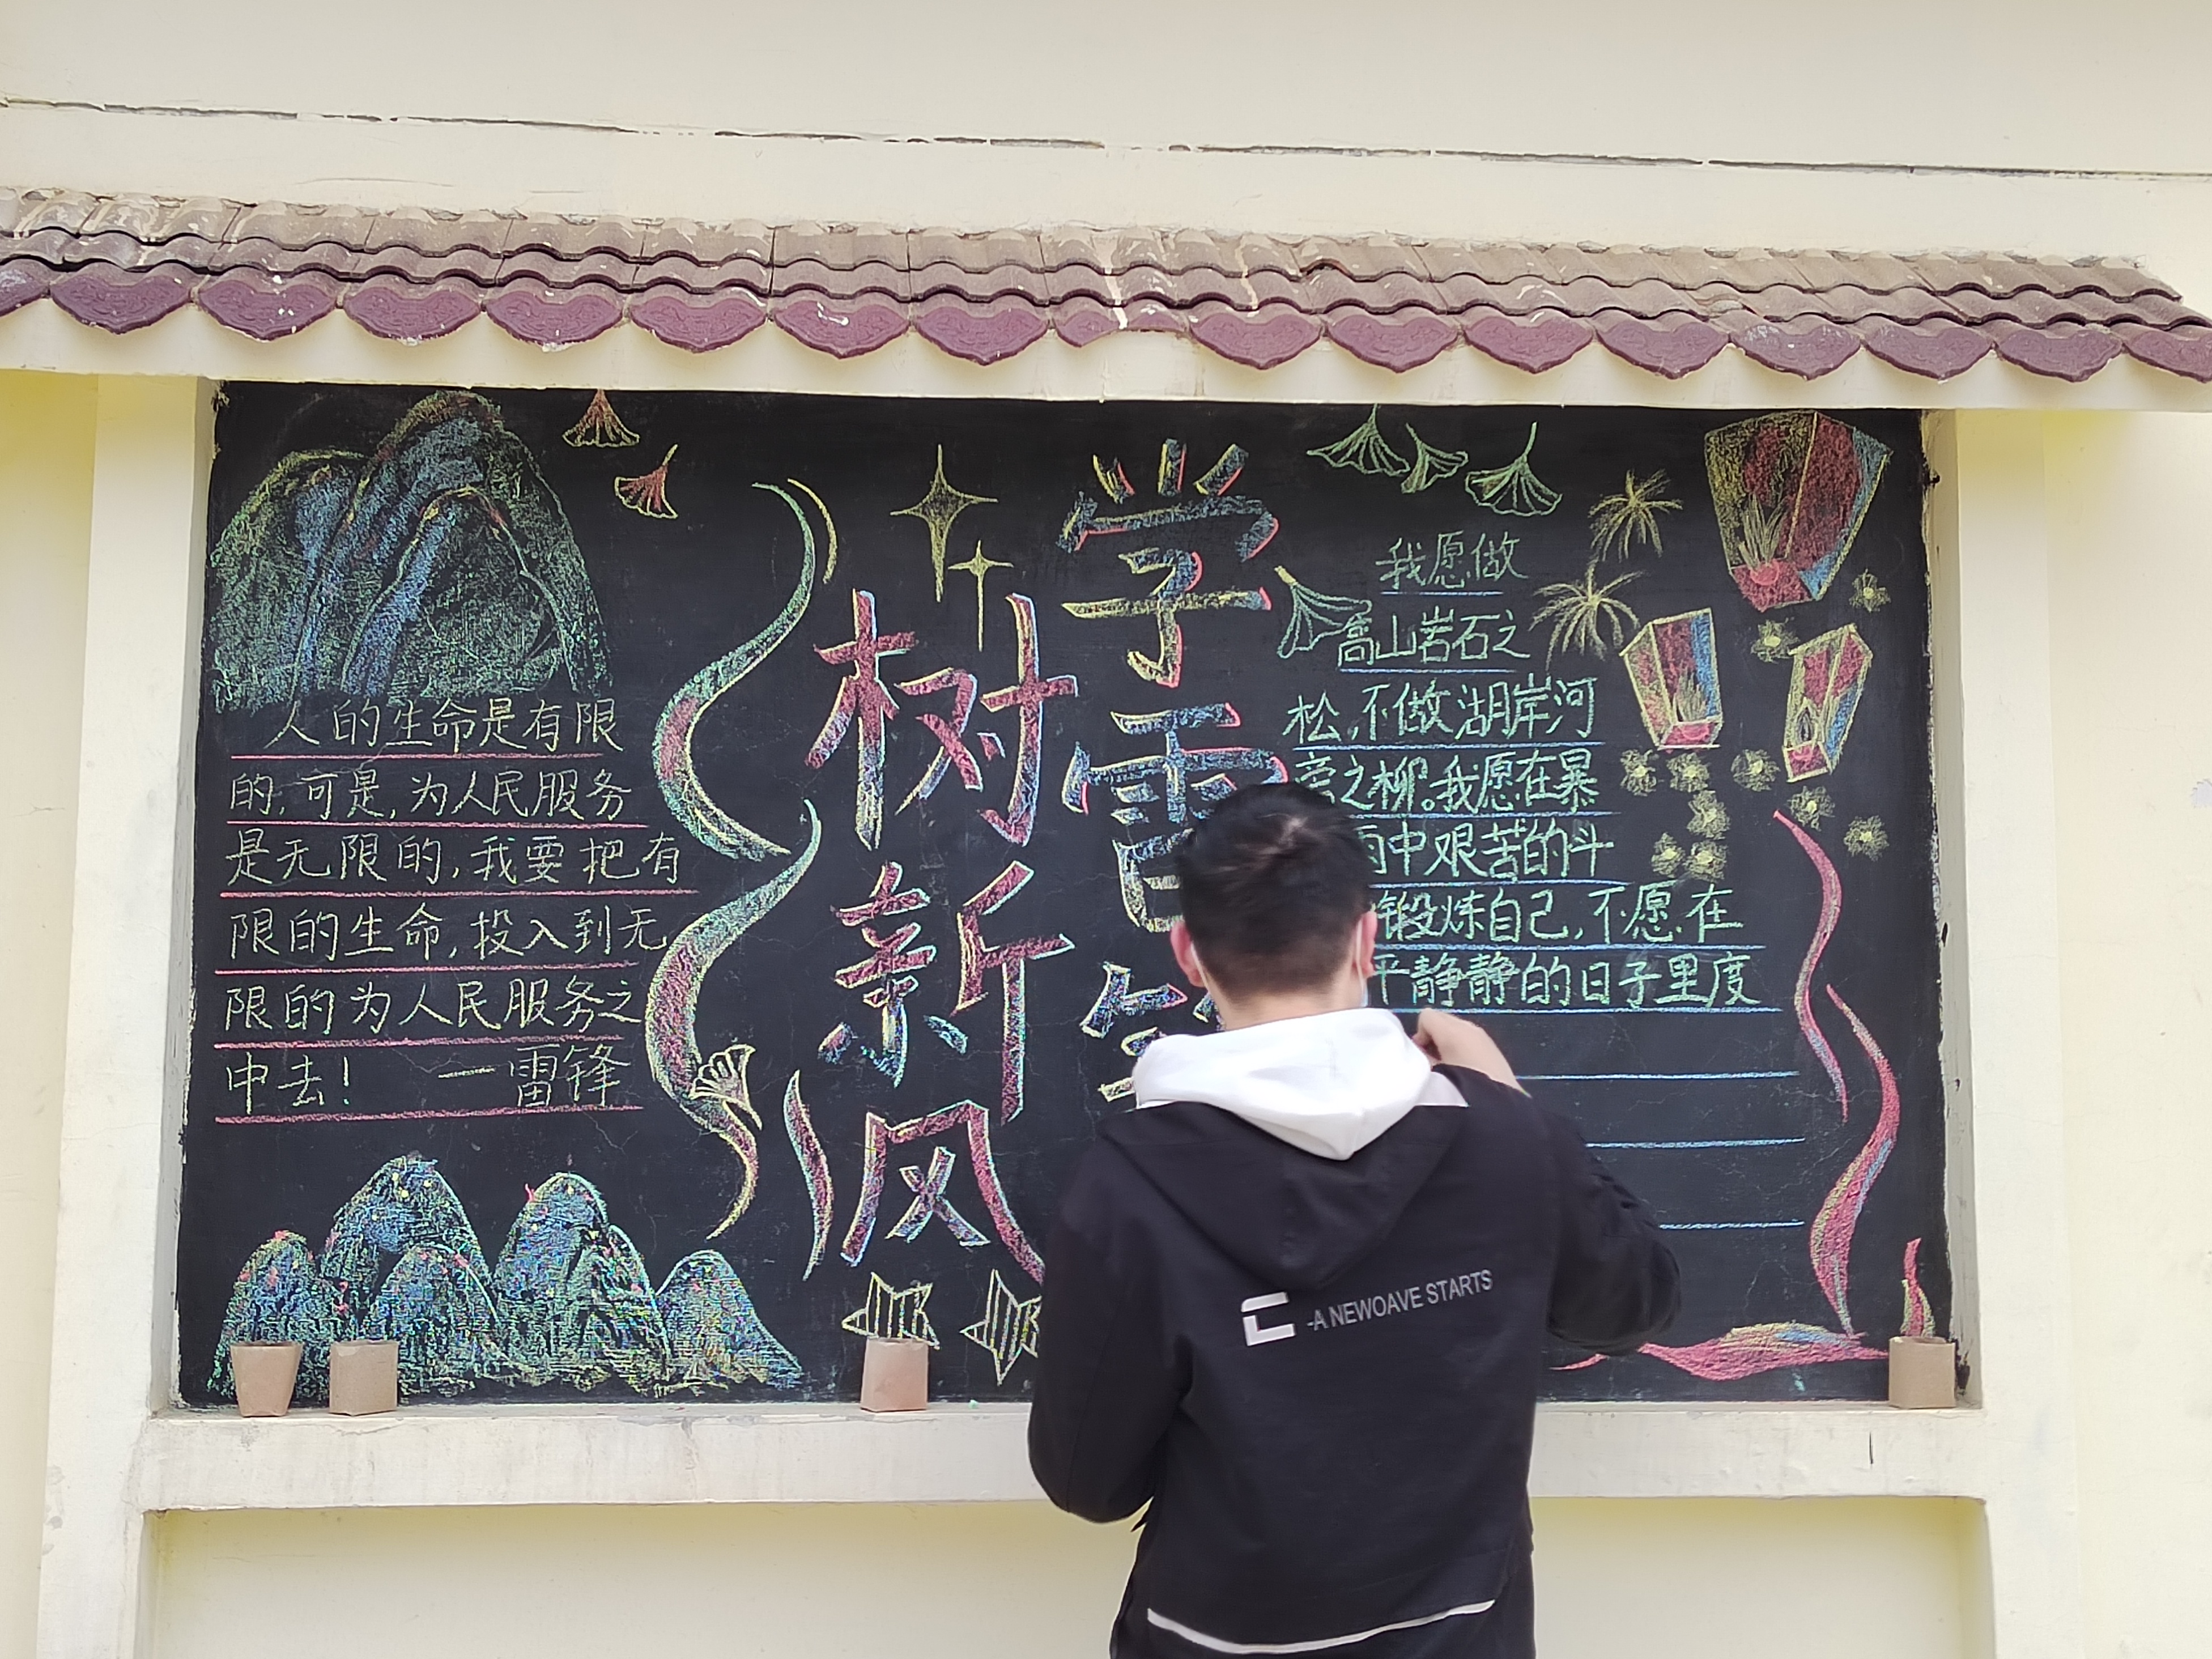 学雷
树新风
人的生命是有限
的,可是,为人民服务
是无限的,我要把有
限的生命,投入到无
限的为人民服务之
中去! —雷锋
我愿做
高山岩石之
松,不做湖岸河
旁之柳。我愿在暴
雨中艰苦的斗
锻炼自己,不愿在
平静静的日子里度
-A NEWOAVE STARTS